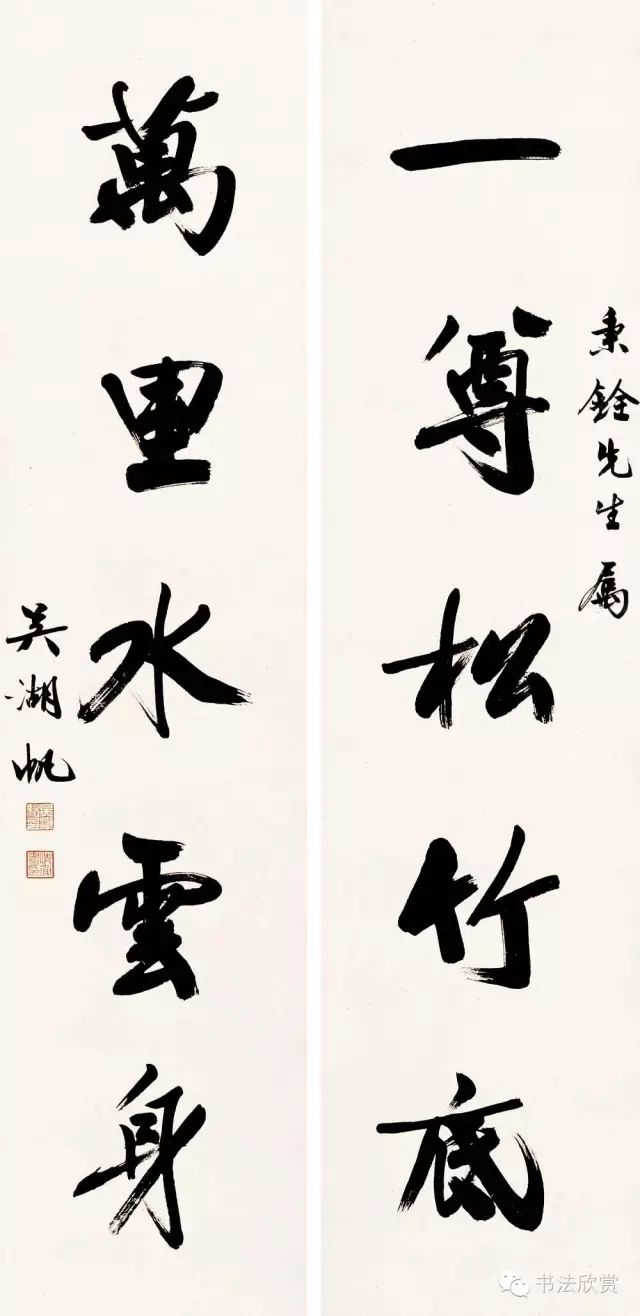 秉銓先生属
一尊松竹底
萬里水雲身
吳湖帆
书法欣赏